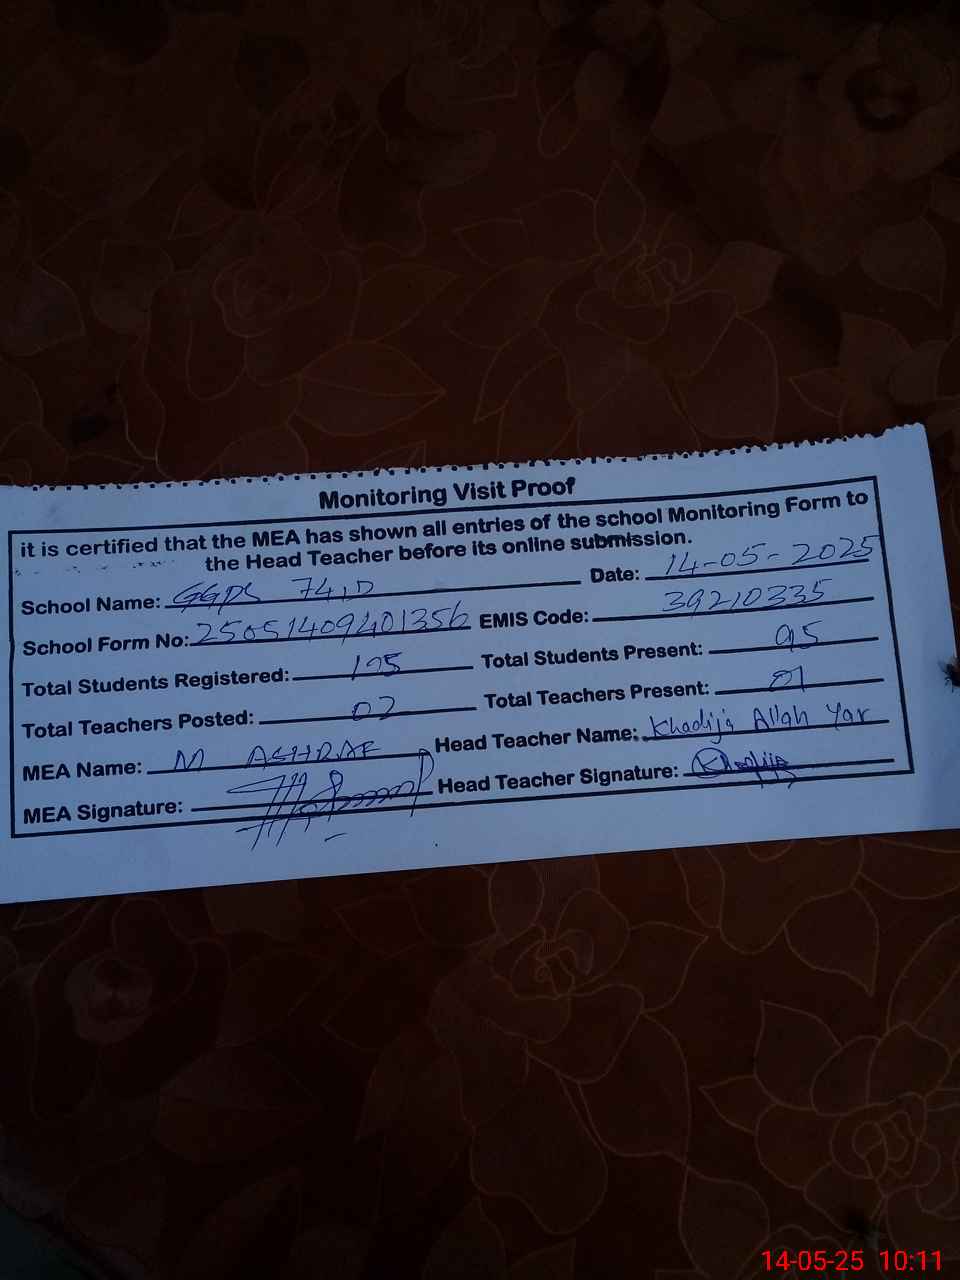 Monitoring Visit Proof
it is certified that the MEA has shown all entries of the school Monitoring Form to
the Head Teacher before its online submission.
School Name: GGPS 74/D Date: 14-05-2025
School Form No: 25051409401356 EMIS Code: 39210335
Total Students Registered: 105 Total Students Present: 95
Total Teachers Posted: 02 Total Teachers Present: 01
MEA Name: M ASHRAF Head Teacher Name: Khadija Allah Yar
MEA Signature: Head Teacher Signature: Khadija
14-05-25 10:11